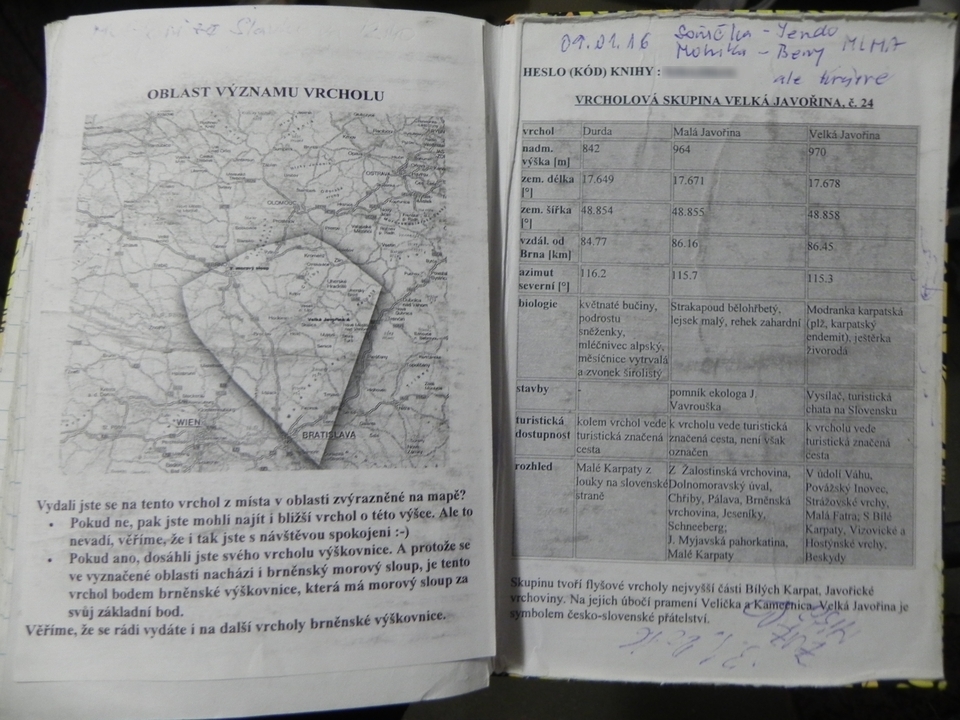 OBLAST VÝZNAMU VRCHOLU
OLOMOUC
OSTRAVA
Velká Javořina
WIEN
BRATISLAVA
Vydali jste se na tento vrchol z místa v oblasti zvýrazněné na mapě?
• Pokud ne, pak jste mohli najít i bližší vrchol o této výšce. Ale to
nevadí, věříme, že i tak jste s návštěvou spokojeni :-)
• Pokud ano, dosáhli jste svého vrcholu výškovnice. A protože se
ve vyznačené oblasti nachází i brněnský morový sloup, je tento
vrchol bodem brněnské výškovnice, která má morový sloup za
svůj základní bod.
Věříme, že se rádi vydáte i na další vrcholy brněnské výškovnice.
09.01.16 Sonička - Jendo
Monika - Beny
ale
HESLO (KÓD) KNIHY :
VRCHOLOVÁ SKUPINA VELKÁ JAVOŘINA, č. 24
vrchol Durda Malá Javořina Velká Javořina
nadm. 842 964 970
výška [m]
zem. délka 17.649 17.671 17.678
[°]
zem. šířka 48.854 48.855 48.858
[°]
vzdál. od 84.77 86.16 86.45
Brna [km]
azimut 116.2 115.7 115.3
severní [°]
biologie květnaté bučiny, Strakapoud bělohřbetý, Modranka karpatská
podrostu lejsek malý, rehek zahardní (plž, karpatský
sněženky, endemit), ještěrka
mléčnivec alpský, živorodá
měsíčnice vytrvalá
a zvonek širolistý
stavby - pomník ekologa J. Vysílač, turistická
Vavrouška chata na Slovensku
turistická kolem vrchol vede k vrcholu vede turistická k vrcholu vede
dostupnost turistická značená značená cesta, není však turistická značená
cesta označen cesta
rozhled Malé Karpaty z Z. Žalostinská vrchovina, V údolí Váhu,
louky na slovenské Dolnomoravský úval, Povážský Inovec,
straně Chřiby, Pálava, Brněnská Strážovské vrchy,
vrchovina, Jeseníky, Malá Fatra; S Bílé
Schneeberg; Karpaty, Vizovické a
J. Myjavská pahorkatina, Hostýnské vrchy,
Malé Karpaty Beskydy
Skupinu tvoří flyšové vrcholy nejvyšší části Bílých Karpat, Javořické
vrchoviny. Na jejich úbočí pramení Velička a Kamečnica. Velká Javořina je
symbolem česko-slovenské přátelství.